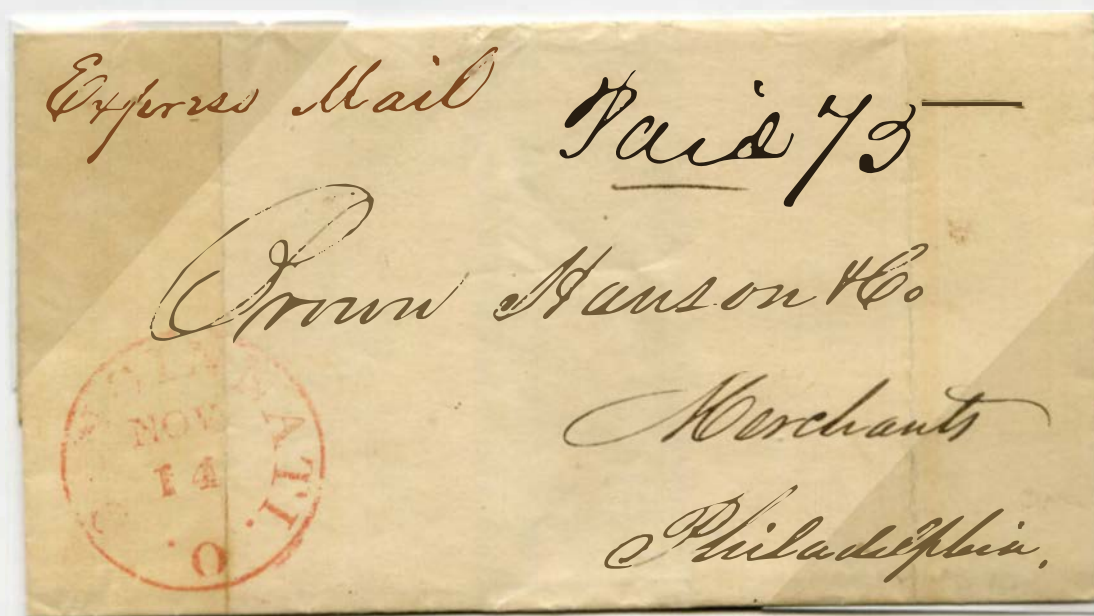 Express Mail
Paid 75
Brown Hanson & Co
Merchants
Philadelphia.
CINCINNATI. O.
NOV
14